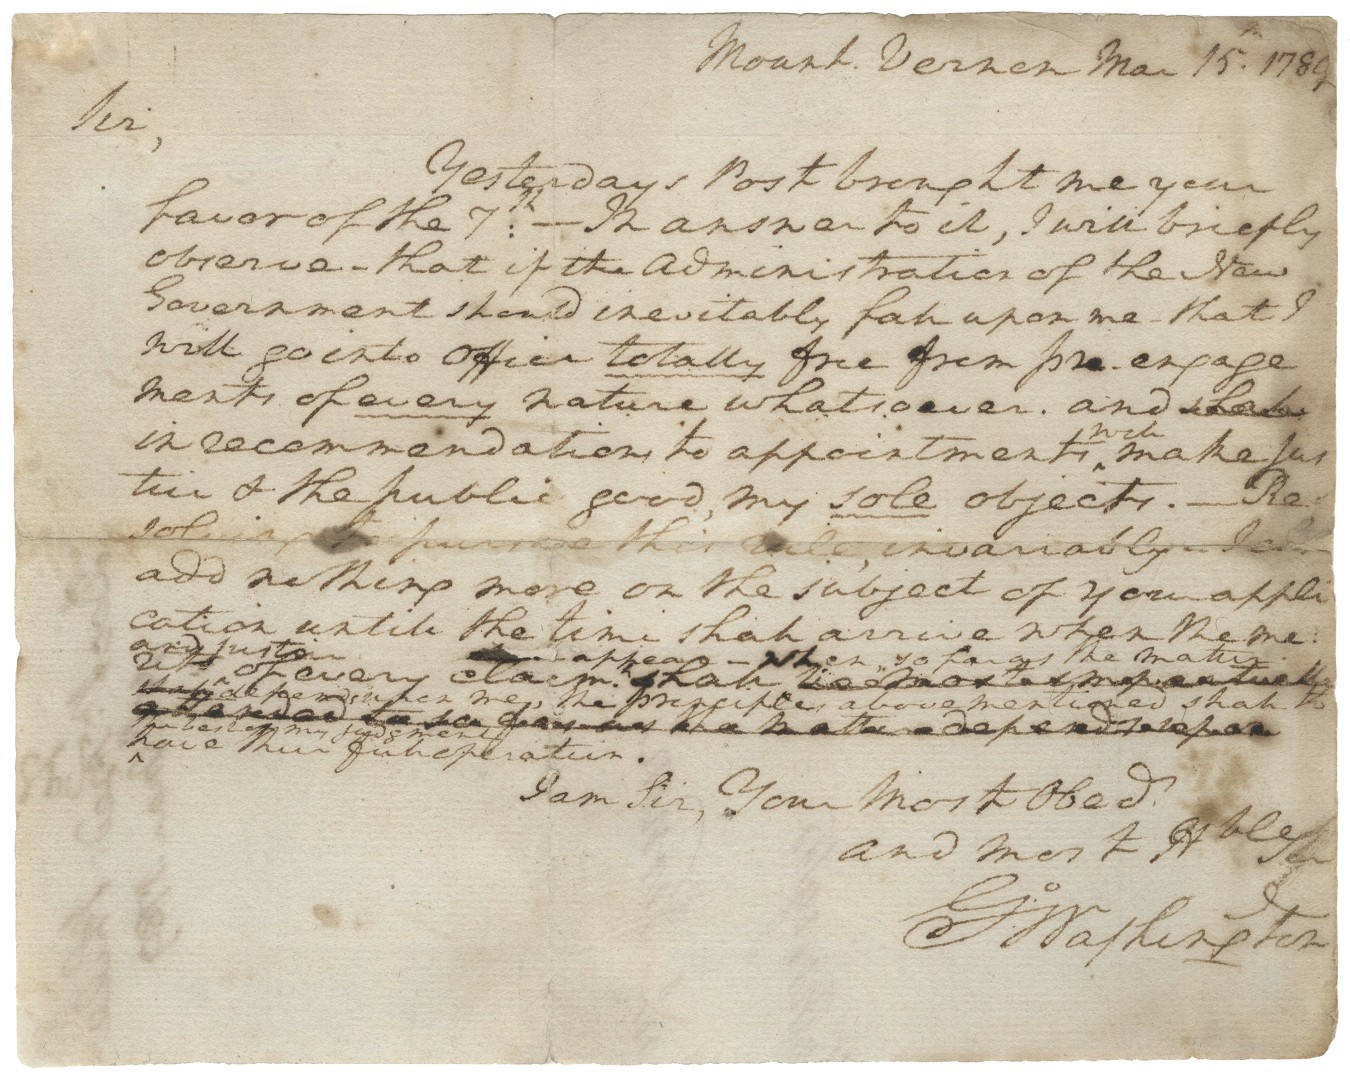 Mount Vernon Mar 15th 1789
Sir,
Yesterdays Post brought me your
favor of the 7th. — In answer to it, I will briefly
observe - that if the Administration of the New
Government should inevitably fall upon me - that I
will go into Office totally free from pre-engage
ments of every nature whatsoever. and shall
will
in recommendations to appointments ^ make jus
tice & the public good, my sole objects. — Re-
solving to pursue this rule, invariably - I
add nothing more on the subject of your appli
cation until the time shall arrive when the me:
and justice appear - when, so far as the matter
rits of every claim shall be most impartially
depends upon me, the principles abovementioned shall to
attended to so far as the matter depends upon
the best of my judgment
^ have their full operation.
I am Sir, Your Most Obedt
and most Hble Ser
Go: Washington